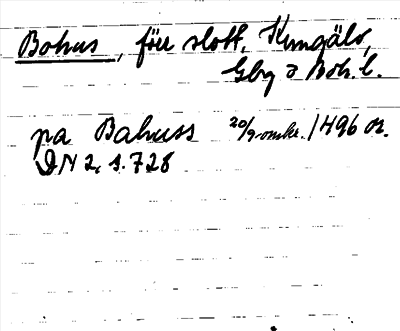 Bohus, förr slott, Kungälv,
Gbg o Boh. l.
pa Bahuss 20/9 omkr. 1496 or.
DN 2, s. 728